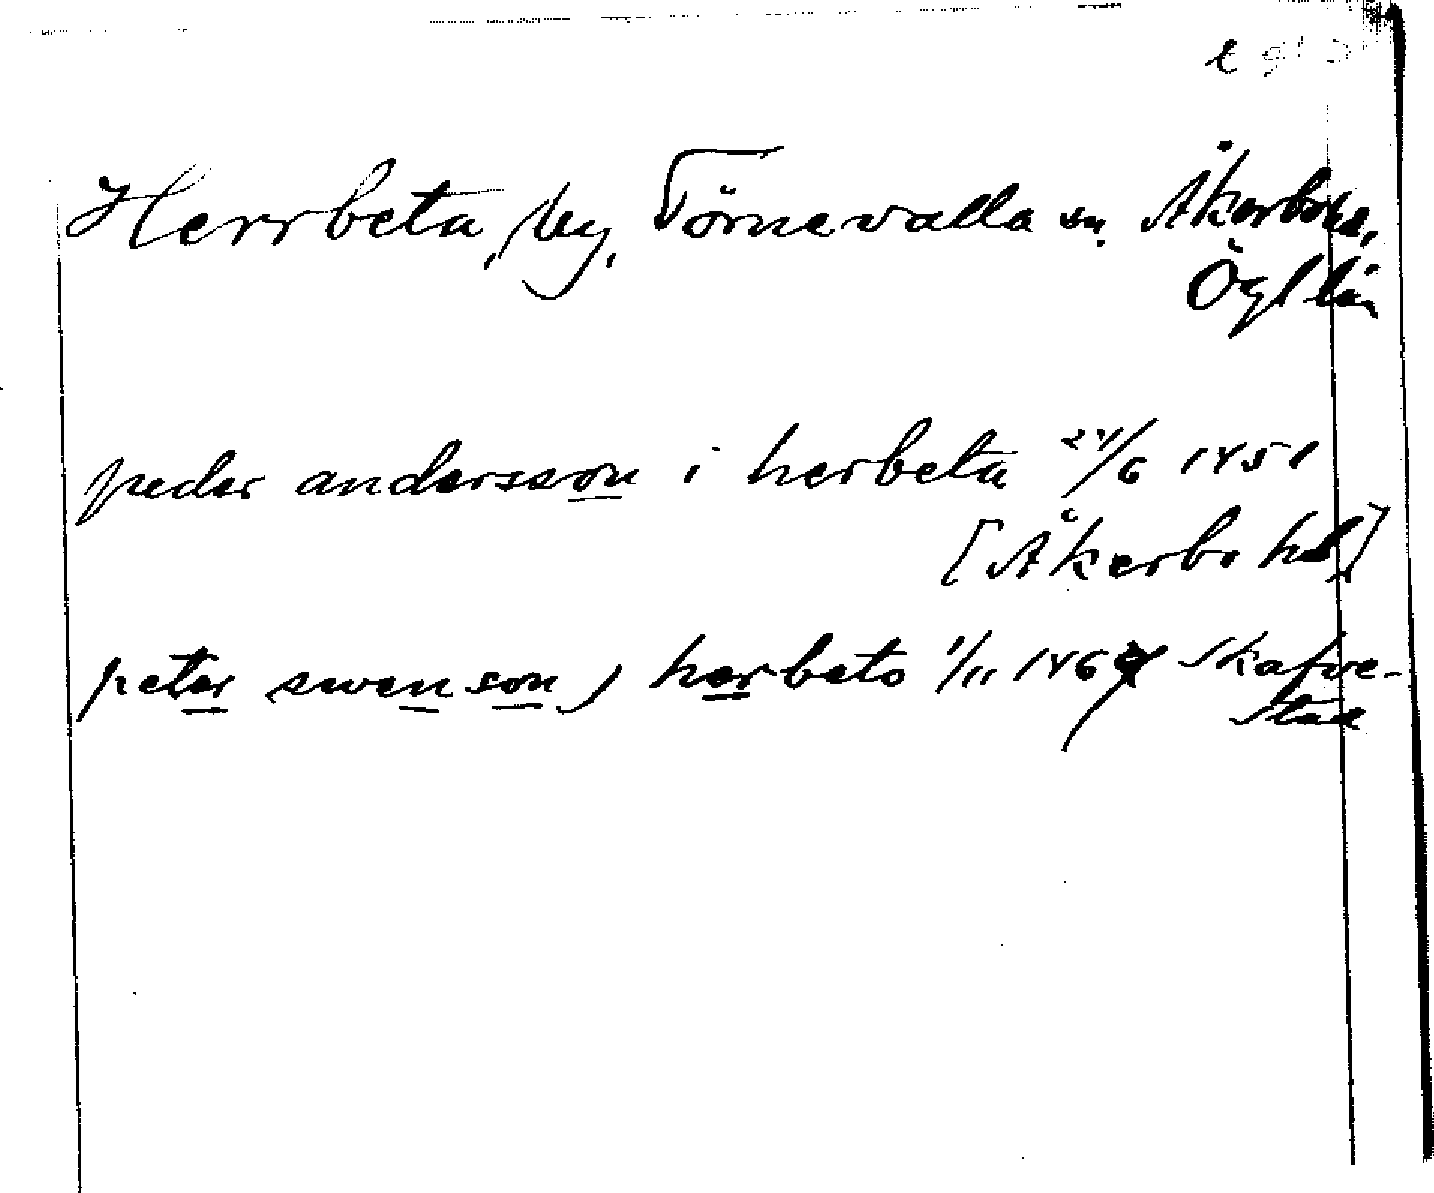 Herrbeta, by, Törnevalla sn. Åkerbo hd,
Ögl län
peder andersson i herbeta 24/6 1451
[Åkerbo hd]
peter swenson j herbeto 1/11 1464 Skafve-
stad